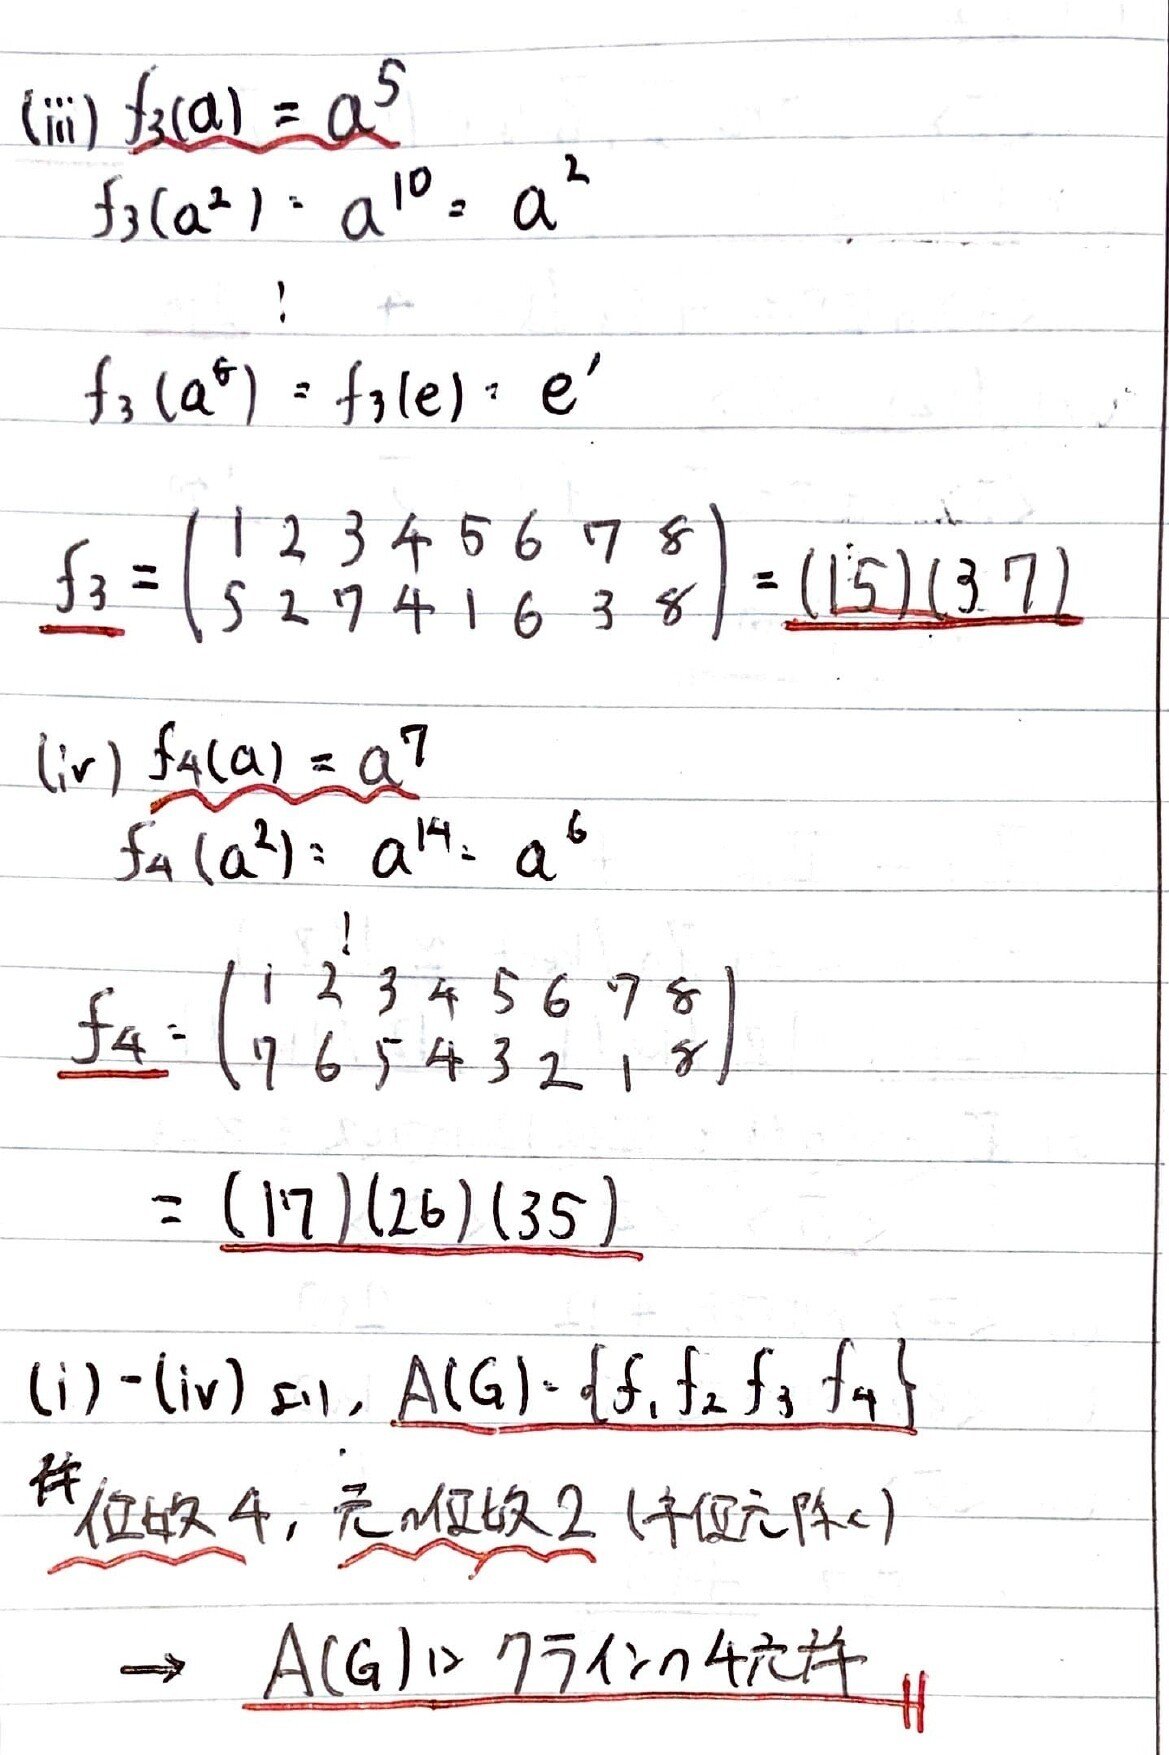 (iii) f₃(a) = a⁵
f₃(a²) = a¹⁰ = a²
⋮
f₃(a⁸) = f₃(e) = e'
f₃ = ( 1 2 3 4 5 6 7 8
5 2 7 4 1 6 3 8 ) = (15)(37)
(iv) f₄(a) = a⁷
f₄(a²) = a¹⁴ = a⁶
⋮
f₄ = ( 1 2 3 4 5 6 7 8
7 6 5 4 3 2 1 8 )
= (17)(26)(35)
(i)-(iv) より, A(G) = {f₁ f₂ f₃ f₄}
群位数4, 元の位数2 (単位元除く)
→ A(G)は クラインの4元群